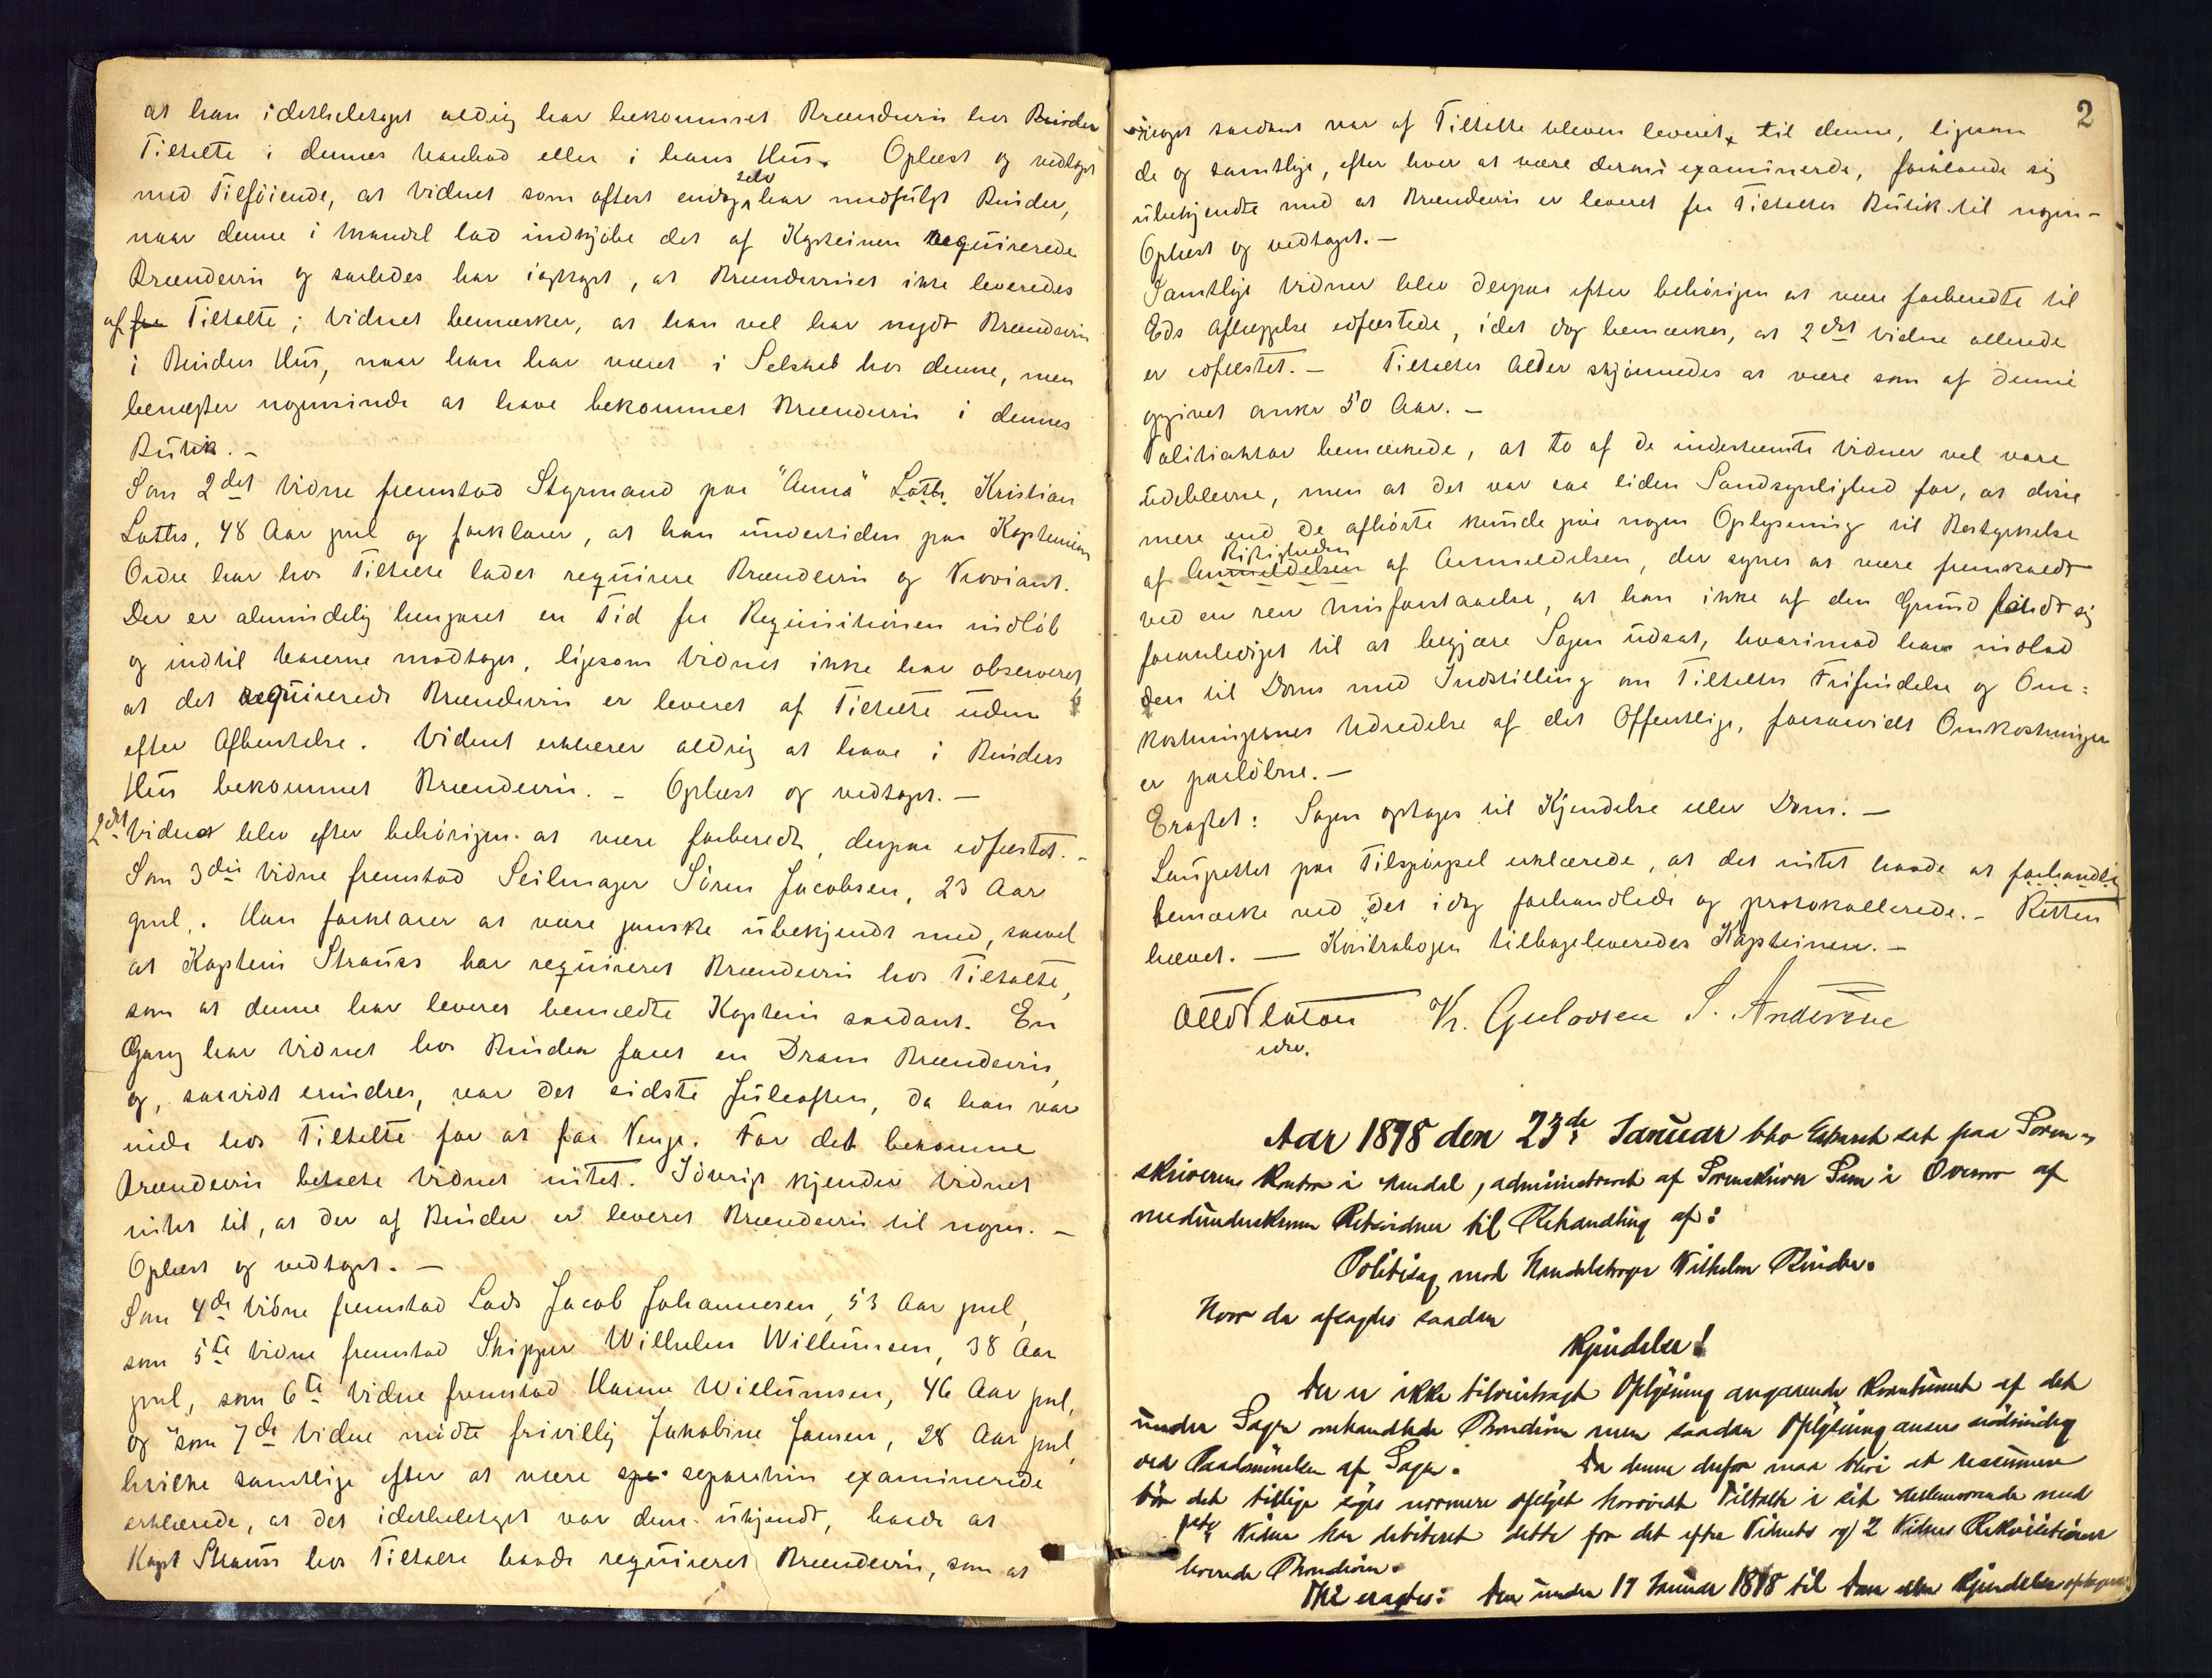 at han idetheletaget aldrig har bekommet Brændevin hos Rinder
Tiltalte i dennes Kanbod eller i hans Hus. Oplæst og vedtaget
med Tilføiende, at Vidnet som oftest endog selv har medfulgt Rinder,
naar denne i Mandal lod indkjøbe det af Kapteinen requirerede
Brændevin og saaledes har iagttaget, at Brændevinet ikke leveredes
af fra Tiltalte; Vidnet bemærker, at han vel har nydt Brændevin
i Rinders Hus, naar han har været i Selskab hos denne, men
benægter nogensinde at have bekommet Brændevin i dennes
Butik. –
Som 2det Vidne fremstod Styrmand paa "Anna" Loths, Kristian
Loths, 48 Aar gml og forklarer, at han undertiden paa Kapteinens
Ordre har hos Tiltalte ladet requirere Brændevin og Proviant.
Der er almindelig hengaaet en Tid fra Requisitionen indløb
og indtil Varerne modtoges, ligesom Vidnet ikke har observeret,
at det requirerede Brændevin er leveret af Tiltalte uden
efter Afhentelse. Vidnet erklærer aldrig at have i Rinders
Hus bekommet Brændevin. – Oplæst og vedtaget. –
2det Vidnet blev efter behørigen at være forberedt, derpaa edfæstet. –
Som 3die Vidne fremstod Seilmager Søren Jacobsen, 23 Aar
gml. Han forklarer at være ganske ubekjendt med, saavel
at Kaptein Strauss har requireret Brændevin hos Tiltalte,
som at denne har leveret bemeldte Kaptein saadant. En
Gang har Vidnet hos Rinder faaet en Dram Brændevin,
og, saavidt erindres, var det sidste Juleaften, da han var
inde hos Tiltalte for at faa Penge. For det bekomne
Brændevin betalte Vidnet intet. Iøvrigt kjender Vidnet
intet til, at der af Rinder er leveret Brændevin til nogen. –
Oplæst og vedtaget. –
Som 4de Vidne fremstod Lods Jacob Johannesen, 53 Aar gml,
som 5te Vidne fremstod Skipper Wilhelm Willumsen, 38 Aar
gml, som 6te Vidne fremstod Hanne Willumsen, 46 Aar gml,
og som 7de Vidne mødte frivillig Jakobine Jansen, 28 Aar gml,
hvilke samtlige efter at være spe separatim examinerede
erklærede, at det idetheletaget var dem ukjendt, baade at
Kapt Strauss hos Tiltalte havde requireret Brændevin, som at
2
noget saadant var af Tiltalte bleven leveret til denne, ligesom
de og samtlige, efter hver at være derom examinerede, forklarede sig
ubekjendte med at Brændevin er leveret fra Tiltaltes Butik til nogen –
Oplæst og vedtaget. –
Samtlige Vidner blev derpaa efter behørigen at være forberedte til
Eds Aflæggelse edfæstede, idet dog bemærkes, at 2det Vidne allerede
er edfæstet. – Tiltaltes Alder skjønnedes at være som af denne
opgivet omkr 50 Aar. –
Politiaktor bemærkede, at to af de indstevnte Vidner vel vare
udeblevne, men at det var saa liden Sandsynlighed for, at disse
mere end de afhørte kunde give nogen Oplysning til Bestyrkelse
af Anmeldelsen Rigtigheden af Anmeldelsen, der synes at være fremkaldt
ved en ren Misforstaaelse, at han ikke af den Grund fandt sig
foranlediget til at begjære Sagen udsat, hvorimod han indlod
den til Doms med Indstilling om Tiltaltes Frifindelse og Om-
kostningernes Udredelse af det Offentlige, forsaavidt Omkostninger
er paaløbne. –
Eragtet: Sagen optages til Kjendelse eller Dom. –
Laugrettet paa Tilspørgsel erklærede, at det intet havde at forhandle
bemærke ved det idag forhandlede og protokollerede. – Retten
hævet. – Kontrabogen tilbageleveredes Kapteinen. –
Otto Platou Kr. Gulovsen S. Andersene
edsv.
Aar 1898 den 23de Januar blev Extraret sat paa Soren-
skriverens Kontor i Mandal, administreret af Sorenskriver Sem i Overvær af
medunderskrevne Retsvidner til Behandling af:
Politisag mod Handelsborger Wilhelm Rinder.
Hvor da afsagdes saadan
Kjendelse!
Der er ikke tilveiebragt Oplysning angaaende Kvantumet af det
under Sagen omhandlede Brændevin men saadan Oplysning ansees nødvendig
ved Paadømmelsen af Sagen. Da denne derfor maa blive at reassumere
bør det tillige søges nærmere oplyst hvorvidt Tiltalte i sit Mellemværende med
Vidne har debiteret dette for det efter Vidnets og 2 Vidnes Rekvisitioner
leverede Brændevin.
Thi eragtes: Den under 17 Januar 1898 til Dom eller Kjendelse optagne